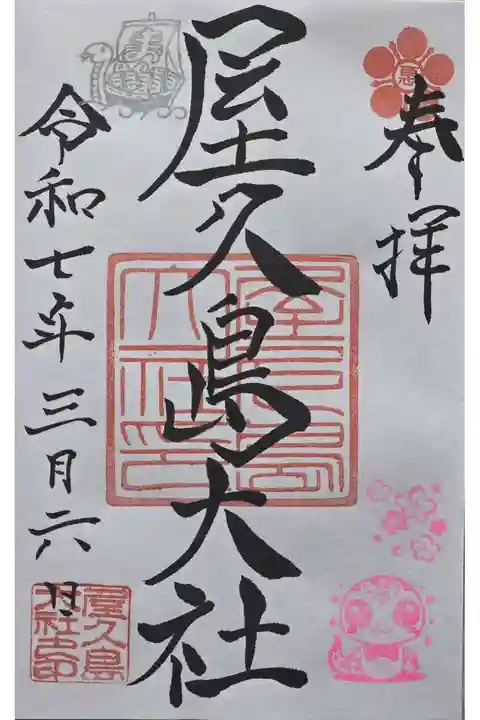 奉拝
屋久島大社
令和七年三月六日
屋久島大社之印
屋久島大社之印